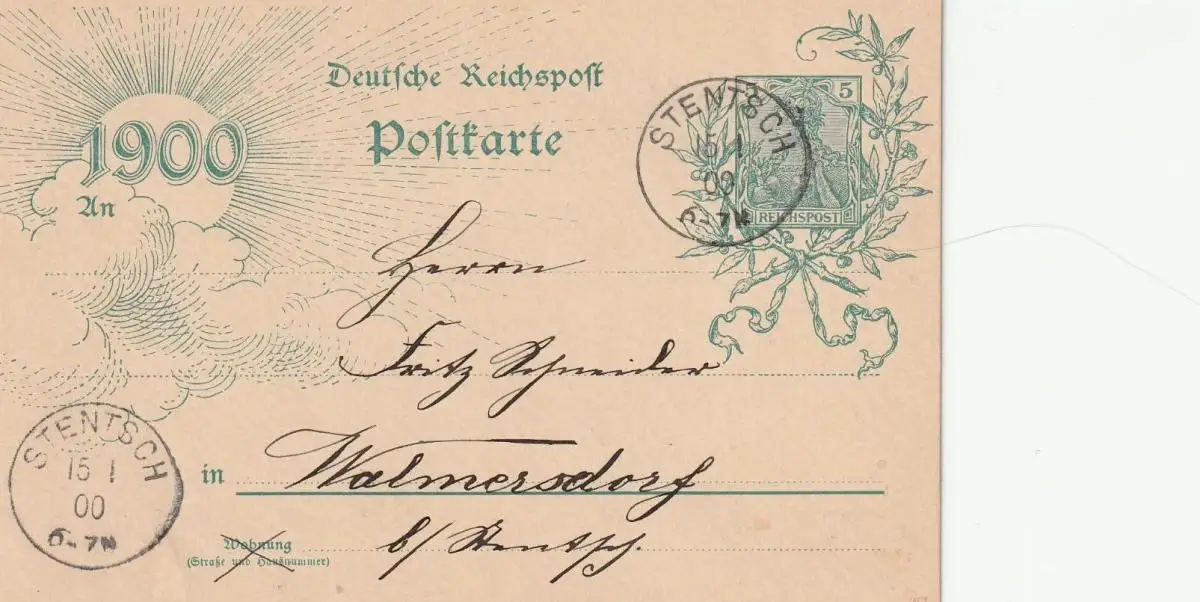 Deutsche Reichspost
Postkarte
1900
5
REICHSPOST
STENTSCH
15 1
00
6-7N
An
Herrn
Fritz Schneider
in Walmersdorf
Wohnung
(Straße und Hausnummer)
b/ Stentsch.
STENTSCH
15 1
00
6-7N